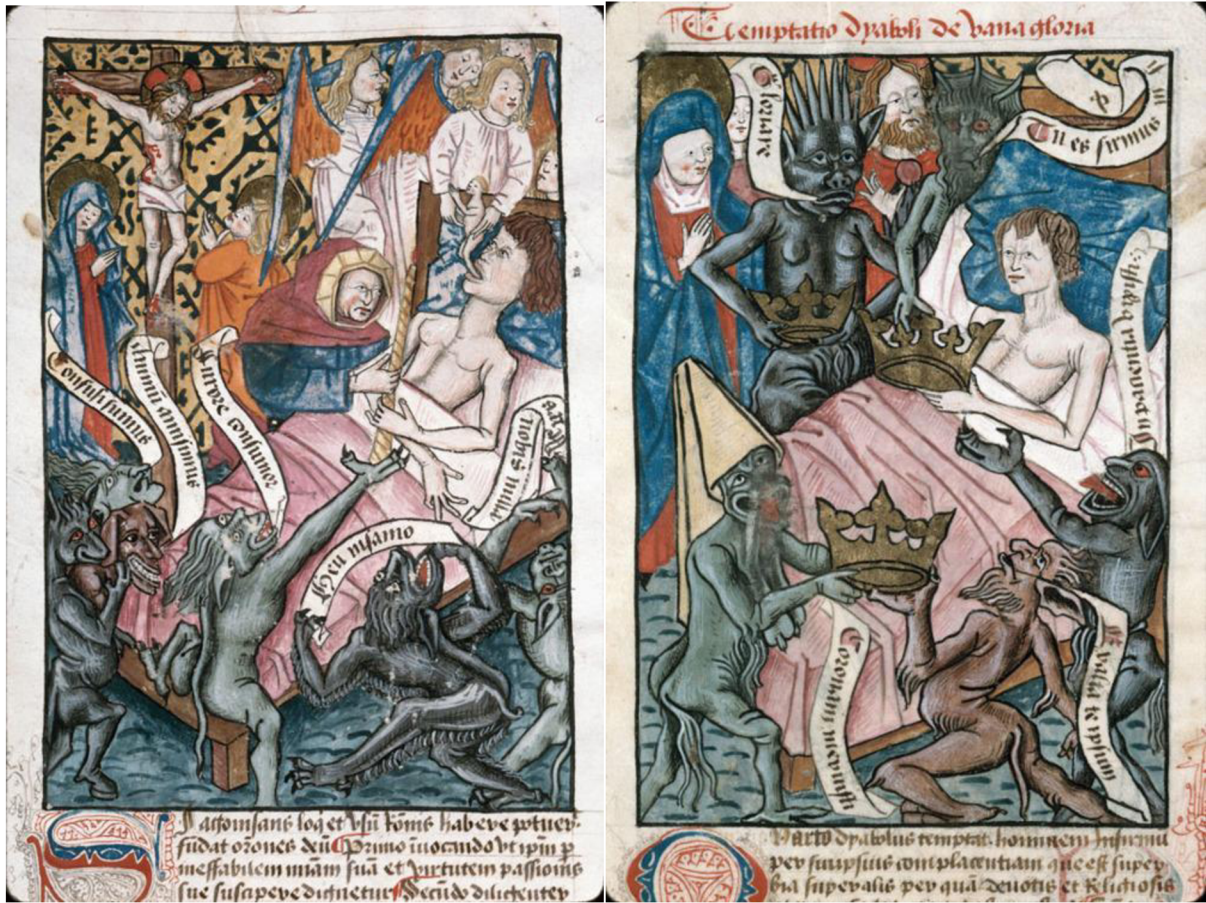 Confusi sumus
animam amisimus
Furore consumor
heu insanio
Spes nobis nulla
Si agonisans loqi et vsu ronis habere potuer
fudat orones deu Primo inuocando vt ipm p
ineffabilem miam sua et virtutem passionis
sue suscipere dignetur Secundo diligenter
Temptatio dyaboli de vana gloria
Gloriare
Tu es firmus
Coronam meruisti
Exalta te ipsum
Quarto dyabolus temptat hominem infirmu
per suiipsius complacentiam que est super
bia per qua deuotis et Religiosis